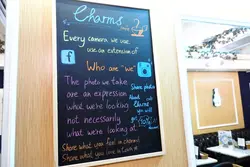 Charms
Every camera we use
is an extension of
Who are "we"
The photo we take
are an expression
what we're looking
not necessarily
what we're looking at
Share photo
about
Charms
&
you will
get
Share what you
Share what you love